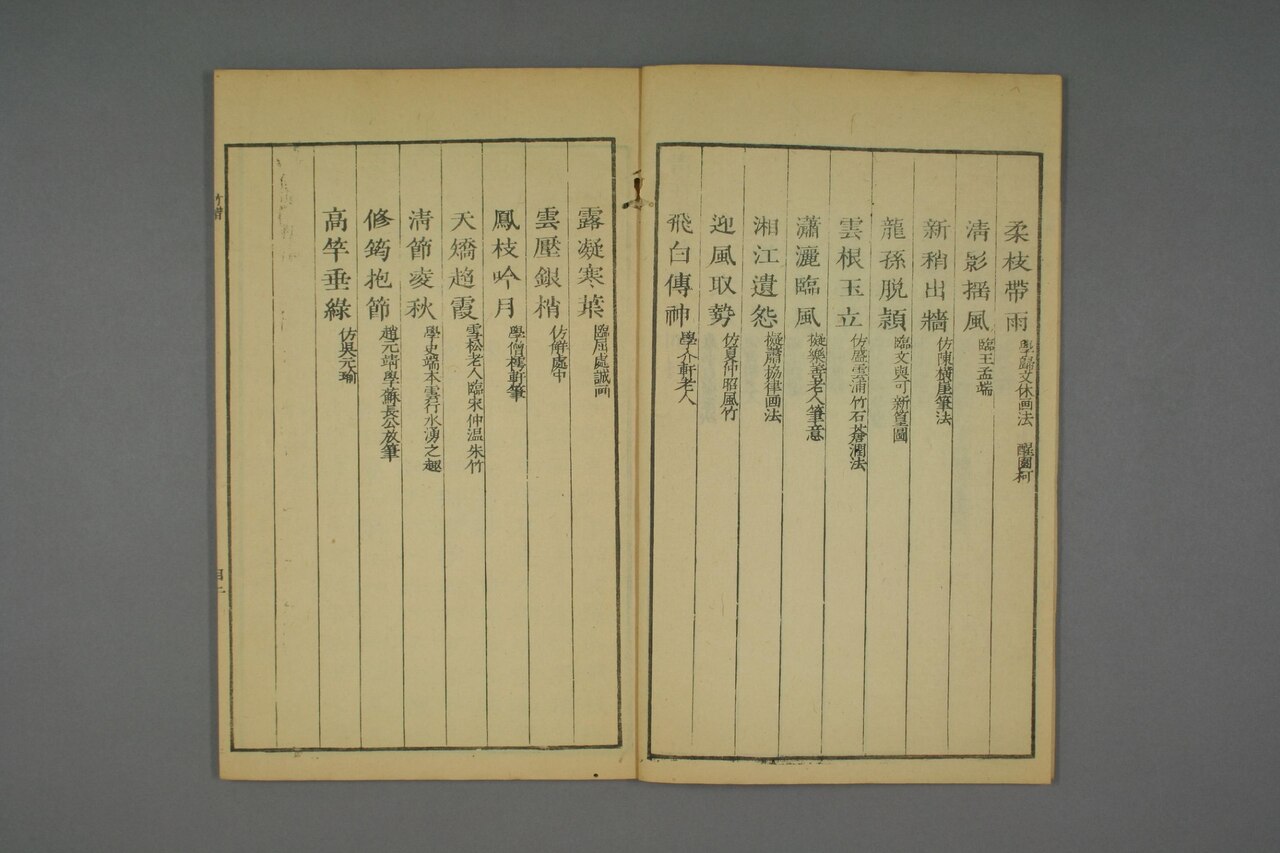 柔枝帶雨 學歸文休画法 醒園柯
清影揺風 臨王孟端
新稍出牆 仿陳橫崖筆法
龍孫脱穎 臨文與可新篁圖
雲根玉立 仿盛雲浦竹石蒼潤法
瀟灑臨風 擬樂善老人筆意
湘江遺怨 擬蕭協律画法
迎風取勢 仿夏仲昭風竹
飛白傳神 學介軒老人
露凝寒葉 臨屈處誠画
雲壓銀梢 仿鮮處中
鳳枝吟月 學僧樗軒筆
夭矯趋霞 雪松老人臨宋仲温朱竹
清節凌秋 學史端本雲行水湧之趣
修筠抱節 趙元靖學蘇長公放筆
高竿垂綠 仿吳元瑜
竹譜